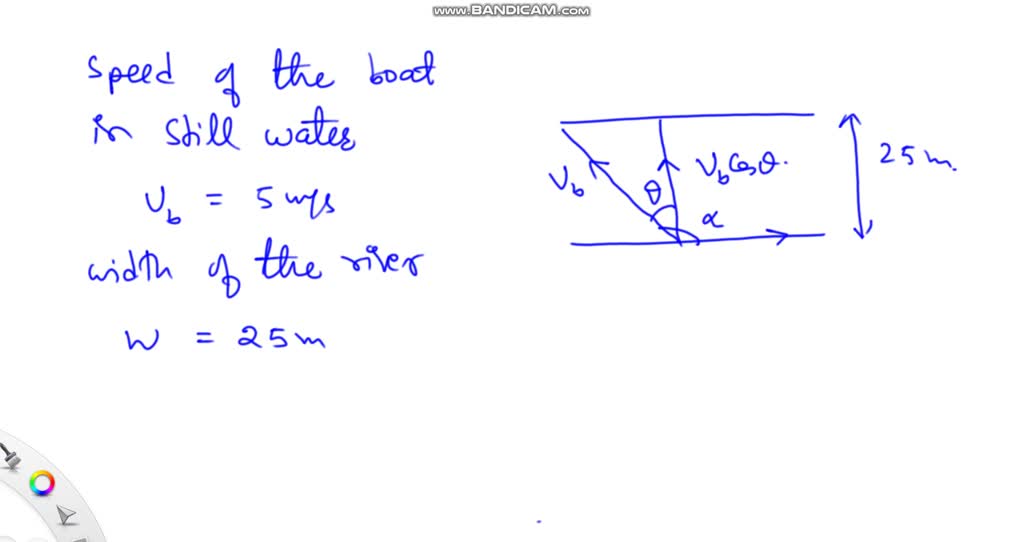 www.BANDICAM.com
Speed of the boat
in still water
V_b = 5 m/s
width of the river
W = 25 m
V_b
θ
V_b Cosθ.
α
25 m.